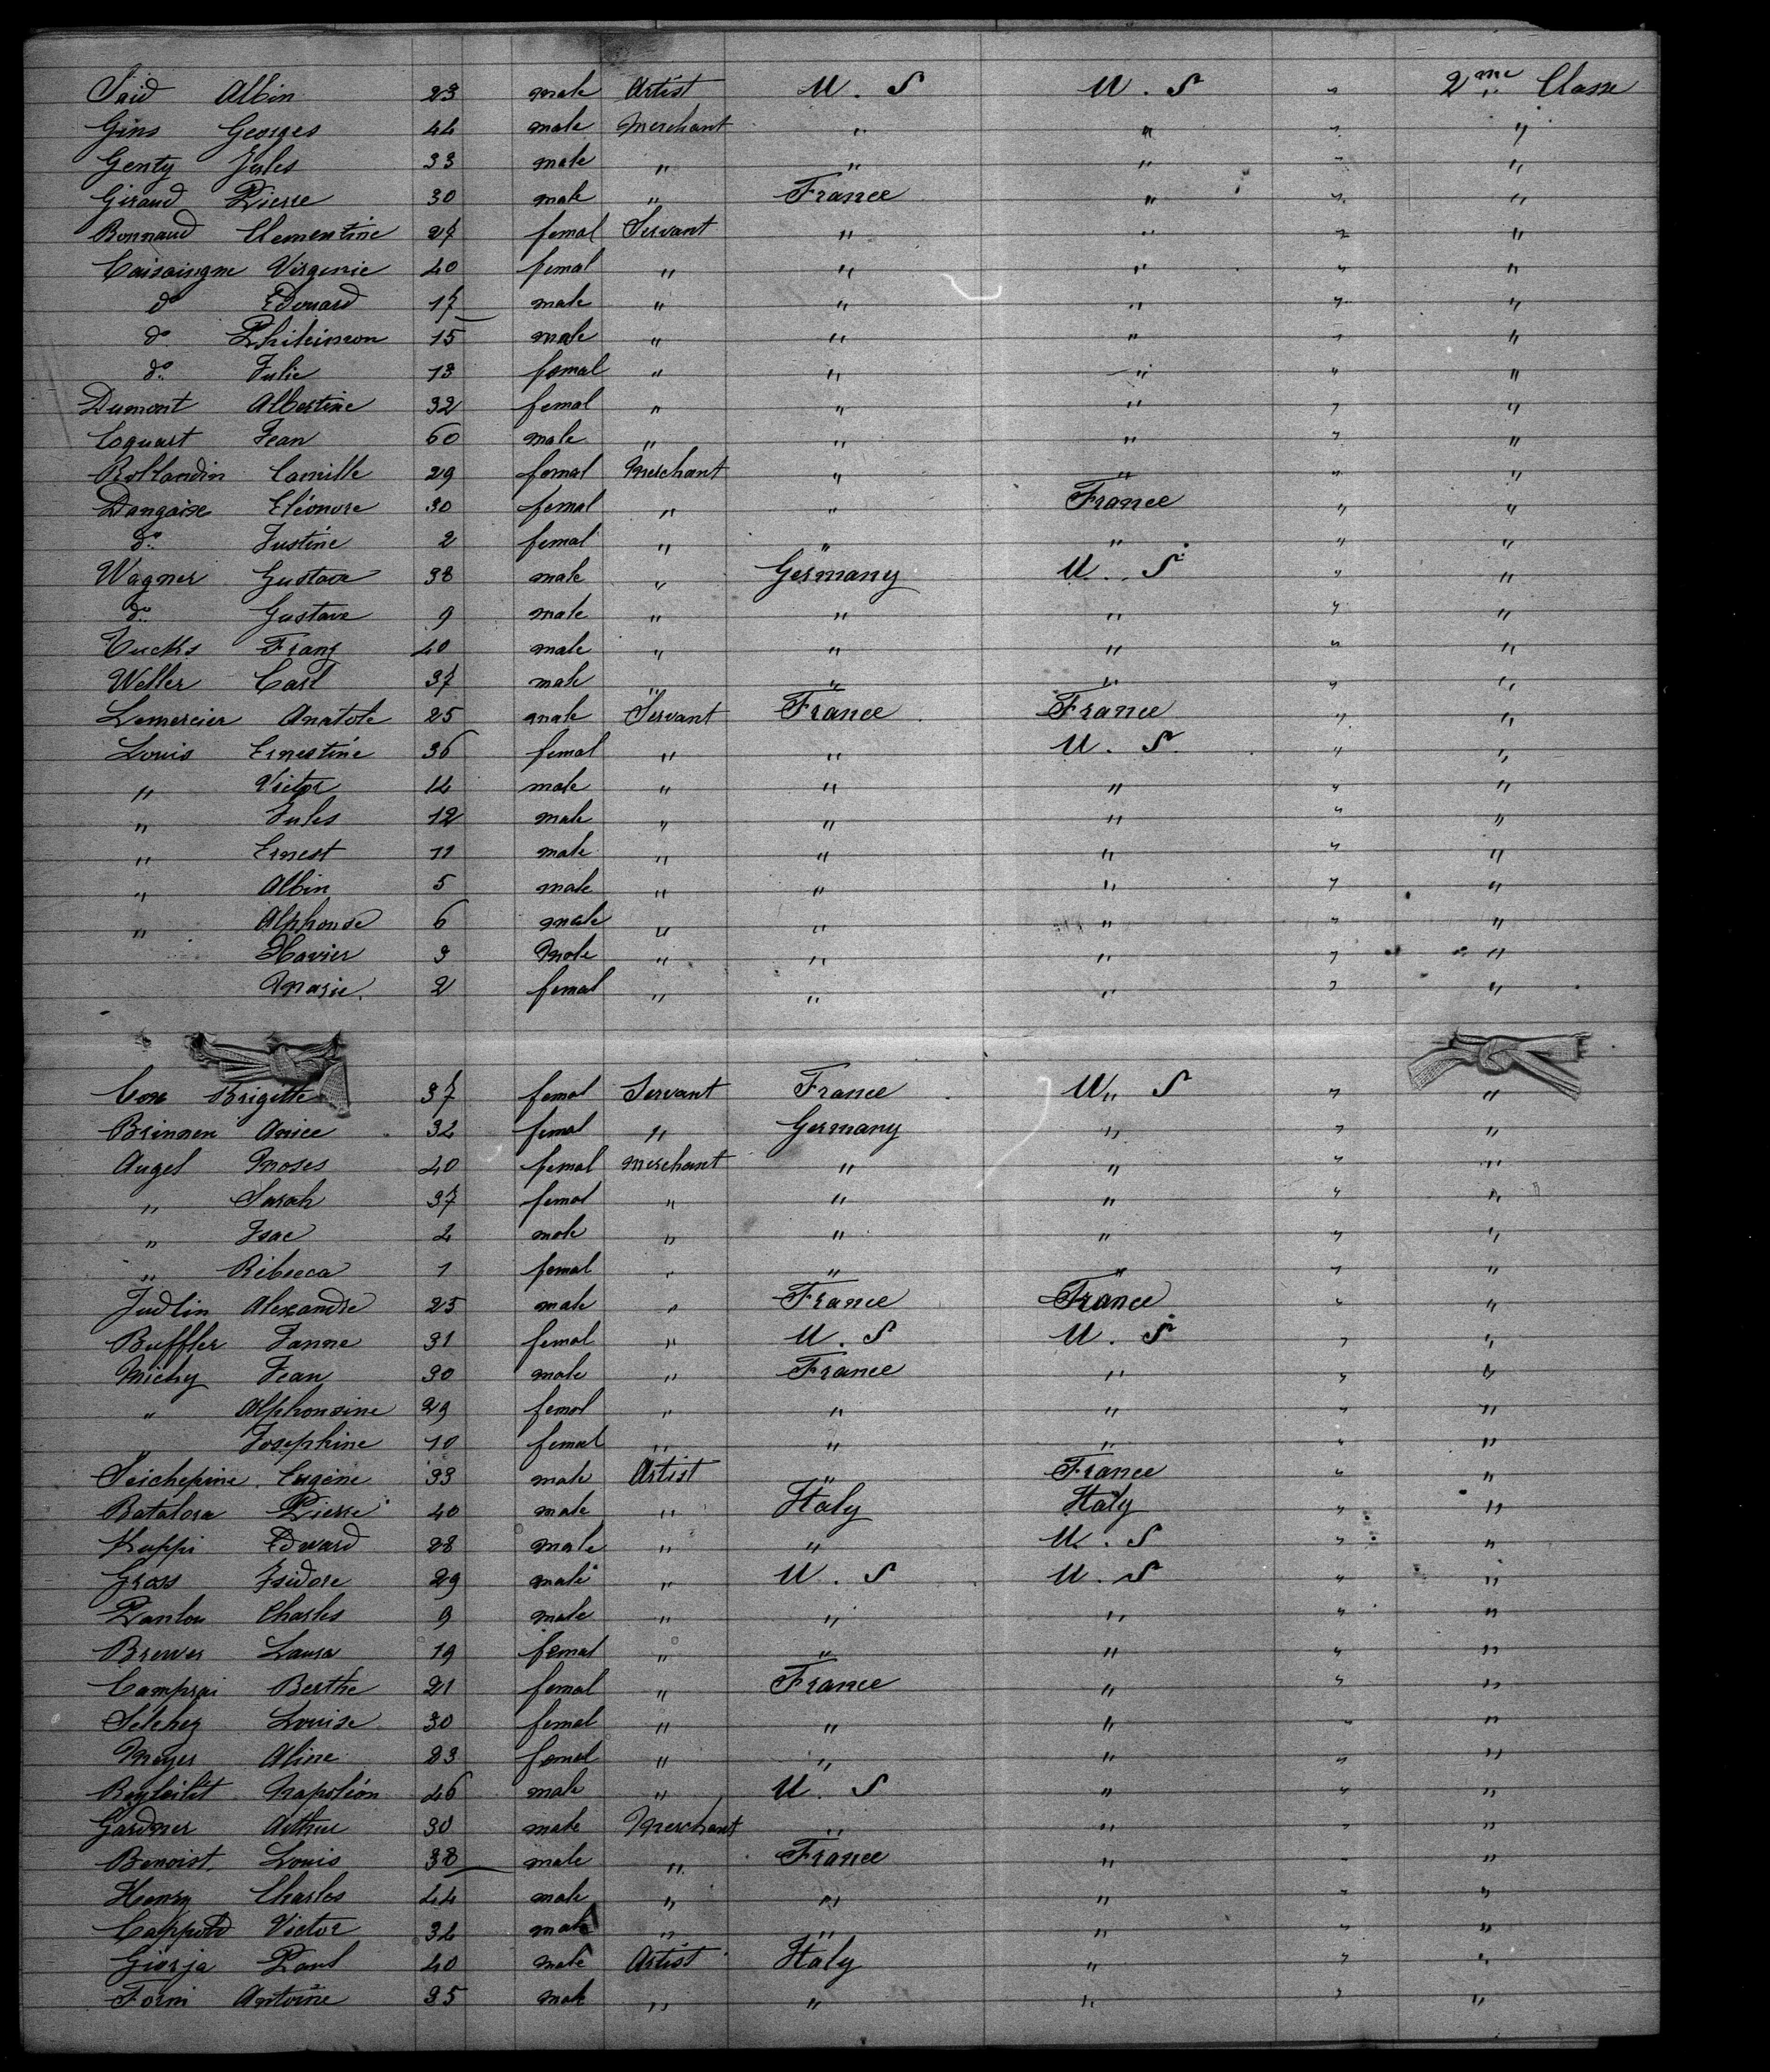 Said Albin 23 male Artist U. S U. S " 2me Classe
Gins Georges 44 male Merchant " " " "
Genty Jules 33 male " " " " "
Giraud Pierre 30 male " France " " "
Bonnaud Clementine 27 femal Servant " " " "
Caisaingne Virginie 40 femal " " " " "
do Edouard 17 male " " " " "
do 15 male " " " " "
do Julie 13 femal " " " " "
Dumont Albertine 32 femal " " " " "
Coquart Jean 60 male " " " " "
Rollandin Camille 29 femal Merchant " " " "
Dangaise Eléonore 30 femal " " France " "
do Justine 2 femal " " " " "
Wagner Gustave 38 male " Germany U. S " "
do Gustave 9 male " " " " "
Franz 40 male " " " " "
Weller Carl 37 male " " " " "
Lemercier Anatole 25 male Servant France France " "
Louis Ernestine 36 femal " " U. S " "
" Victor 14 male " " " " "
" Jules 12 male " " " " "
" Ernest 11 male " " " " "
" Albin 5 male " " " " "
" Alphonse 6 male " " " " "
Xavier 3 Male " " " " "
Marie. 2 femal " " " " "
Brigitte 37 femal Servant France U. S " "
Brinnen 32 femal " Germany " " "
Augel Moses 40 femal merchant " " " "
" Sarah 37 femal " " " " "
" Isac 2 male " " " " "
" Rébecca 1 femal " " " " "
Judlin Alexandre 25 male " France France " "
Buffler Janne 31 femal " U. S U. S " "
Michy Jean 30 male " France " " "
" Alphonsine 29 femal " " " " "
" Josephine 10 femal " " " " "
Seichepine Eugène 33 male Artist " France " "
Batalora Pierre 40 male " Italy Italy " "
Kuppi Edward 28 male " " U. S " "
Gross Isidore 29 male " U. S U. S " "
Charles 9 male " " " " "
Brewer Laura 19 femal " " " " "
Camprai Berthe 21 femal " France " " "
Selchez Louise 30 femal " " " " "
Meyer Aline 23 femal " " " " "
Napoléon 46 male " U. S " " "
Gardner Arthur 30 male Merchant " " " "
Benoist Louis 38 male " France " " "
Henry Charles 44 male " " " " "
Victor 32 male " " " " "
Giorja Paul 40 male Artist Italy " " "
Forni Antoine 35 male " " " " "